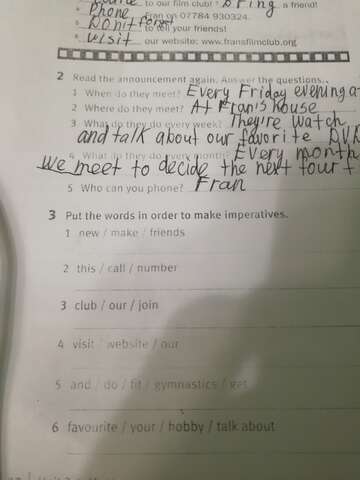 to our film club! Bring a friend!
Phone Fran on 07784 930324.
Don't forget to tell your friends!
visit our website: www.fransfilmclub.org
2 Read the announcement again. Answer the questions.
1 When do they meet? Every Friday evening
2 Where do they meet? At Fran's house
3 What do they do every week? They're watch
and talk about our favorite DVD
4 What do they do every month? Every month
we meet to decide the next four
5 Who can you phone? Fran
3 Put the words in order to make imperatives.
1 new / make / friends
2 this / call / number
3 club / our / join
4 visit / website / our
5 and / do / fit / gymnastics / get
6 favourite / your / hobby / talk about